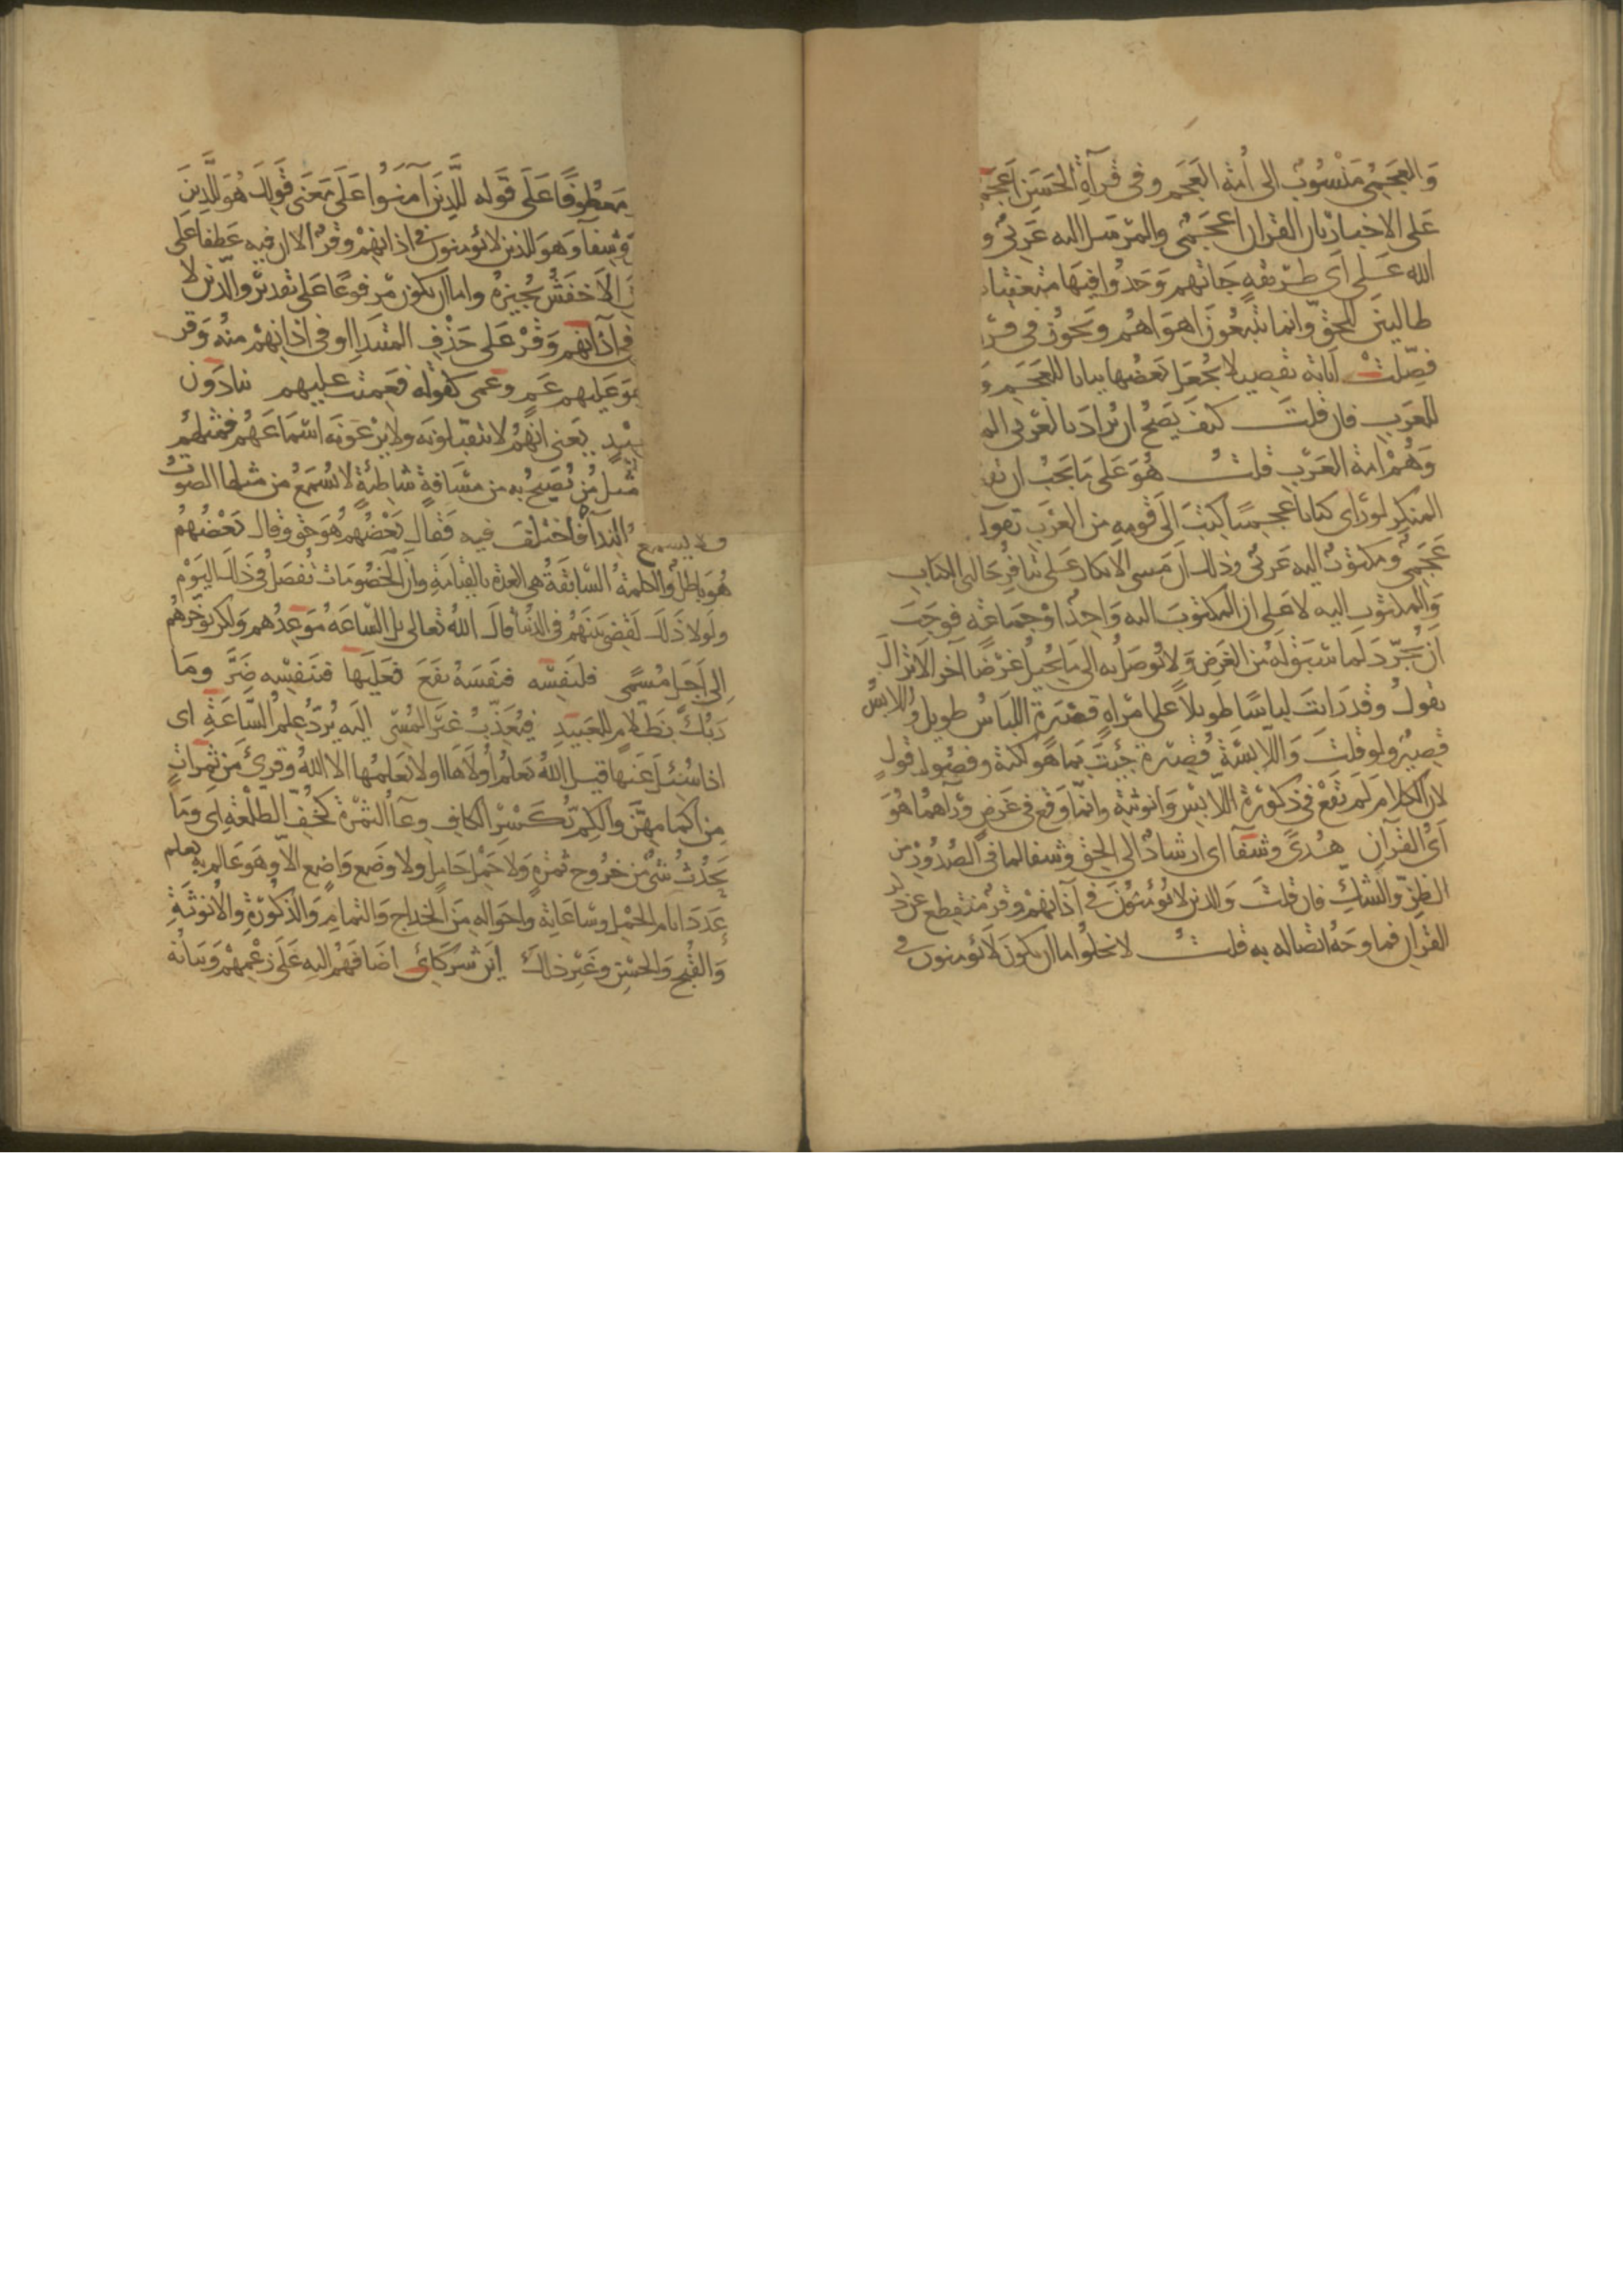 والعجمي منسوب الى امة العجم وفى قرآة الحسن اعجمي
على الاخبار بان القران اعجمي والمرسل اليه عربي و
الله على اى طريقة جاتهم وجدوا فيها متعنتا
طالبين للحق وانما يتبعون اهواهم ويجوز فى قرا
فصلت اياته تفصيلا يجعل بعضها بيانا للعجم و
للعرب فان قلت كيف يصح ان يراد بالعربى الم
وهم امة العرب قلت هو على ما يجب ان تق
المنكر لو راى كتابا اعجميا كتب الى قوم من العرب تقول
عجمي ومكتوب اليه عربي وذلك ان مبنى الانكار على تنافر حالتى الكتاب
والمكتوب اليه لا على ان المكتوب اليه واحد او جماعة فوجب
ان يجرد لما سبق له من الغرض ولا يوصل به الى ما يحيل غرضا آخر الا ترى انك
تقول وقد رايت لباسا طويلا على مراة قصيرة اللباس طويل واللابس
قصير ولو قلت واللابسة قصيرة جئت بما هو لكنة وفضول قول
لان الكلام لم تقع فى ذكورة اللابس وانوثته وانما وقع فى غرض ورآهما هو
اى القرآن هدى وشفآ اى ارشاد الى الحق وشفا لما فى الصدور من
الظن والشك فان قلت والذين لا يؤمنون فى آذانهم وقر منقطع عن ذكر
القران فما وجه اتصاله به قلت لا يخلوا اما ان يكون لا يؤمنون فى
معطوفا على قوله للذين آمنوا على معنى قولك هو للذين
وشفآ وهو للذين لا يؤمنون فى اذانهم وقر الا ان فيه عطفا على
الاخفش يجيزه واما ان يكون مرفوعا على تقدير والذين لا
فى آذانهم وقر على حذف المبتدا او فى اذانهم منه وقر
هو عليهم عم وعمى كقوله فعميت عليهم ينادون
يعنى انهم لا يقبلونه ولا يرعونه اسماعهم فمثلهم
مثل من يصيح به من مسافة شاطئة لا يسمع من مثلها الصوت
فلا يسمع الندآ فاختلف فيه فقال بعضهم هو حق وقال بعضهم
هو باطل والكلمة السابقة هى العدة بالقيامة وان الخصومات تفصل فى ذلك اليوم
ولولا ذلك لقضى بينهم فى الدنيا قال الله تعالى بل الساعة موعدهم ولكن يؤخرهم
الى اجل مسمى فلنفسه فنفسه نفع فعليها فنفسه ضر وما
ربك بظلام للعبيد فيعذب غير المسى اليه يرد علم الساعة اى
اذا سئل عنها قيل الله يعلم او لا يعلمها الا الله وقرئ من ثمرات
من اكمامهن والكم بكسر الكاف وعآ الثمرة كجف الطلعة اى وما
يحدث شئ من خروج ثمرة ولا حمل حامل ولا وضع واضع الا وهو عالم به يعلم
عدد ايام الحمل وساعاته واحواله من الخداج والتمام والذكورة والانوثة
والقبح والحسن وغير ذلك اين شركائى اضافهم اليه على زعمهم وبيانه